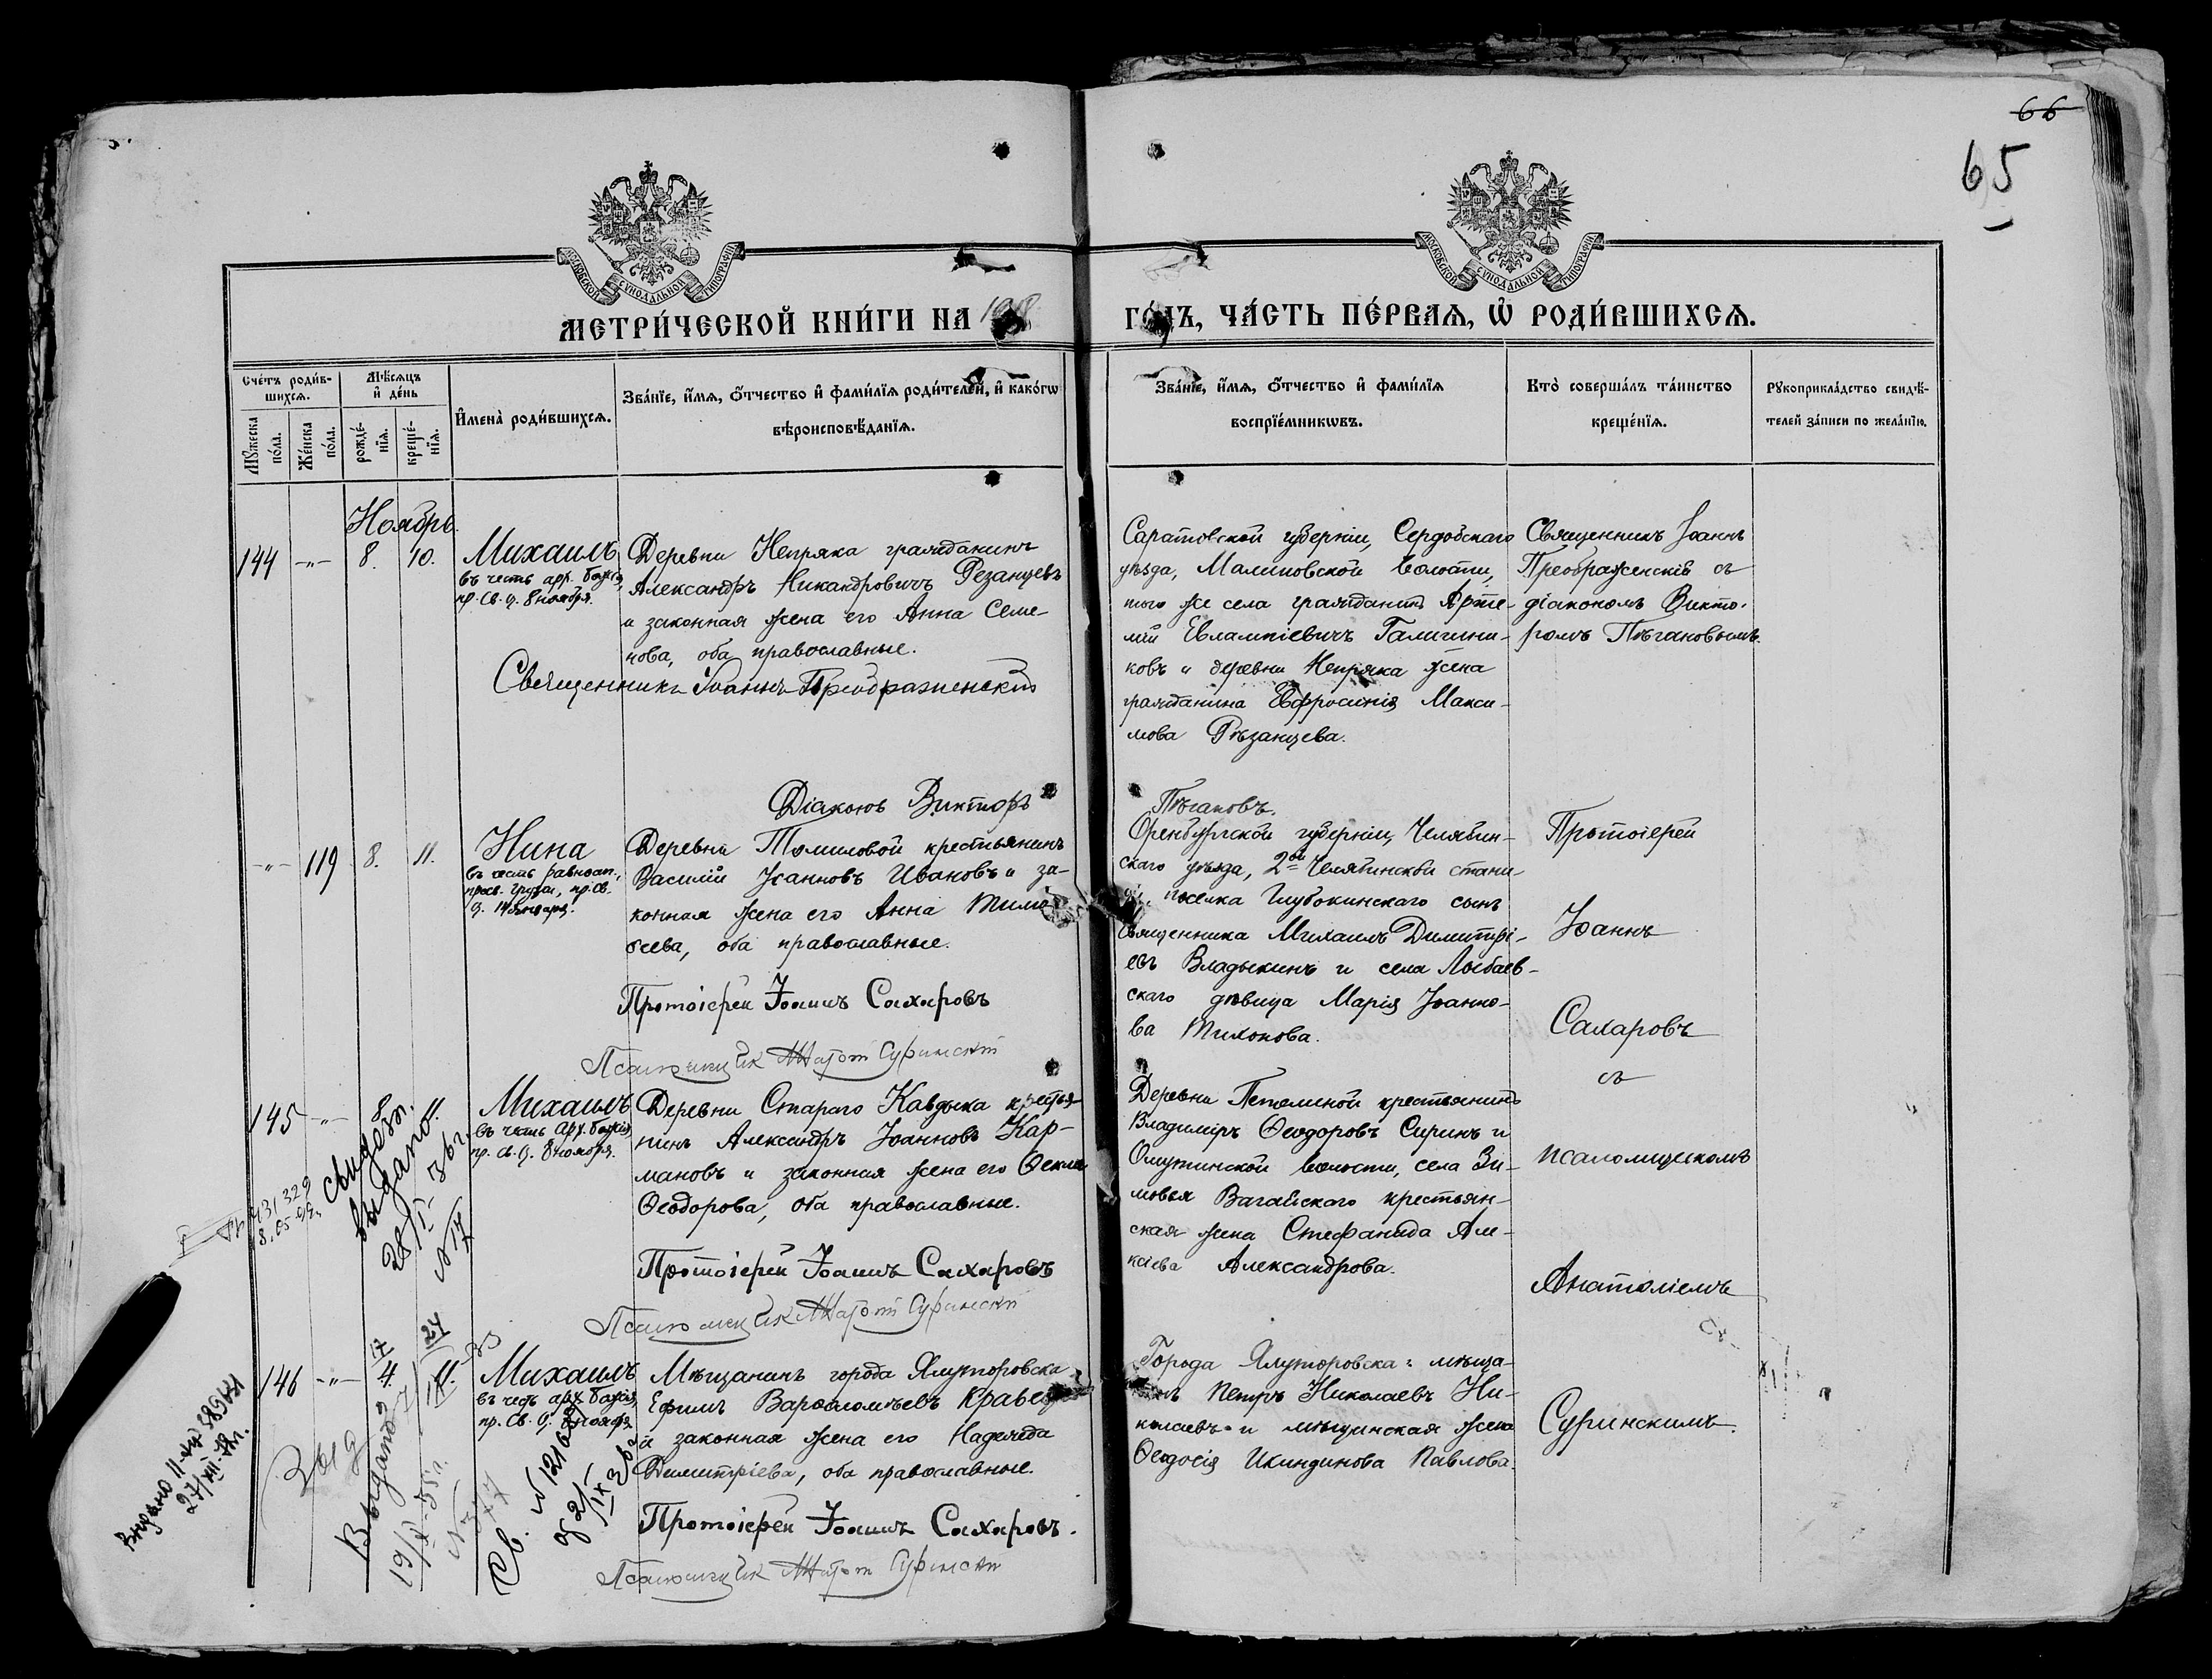 66
65
МОСКОВСКОЙ СУНОДАЛЬНОЙ ТИПОГРАФІИ
МОСКОВСКОЙ СУНОДАЛЬНОЙ ТИПОГРАФІИ
МЕТРИ́ЧЕСКОЙ КНИ́ГИ НА 1918 ГО́ДЪ, ЧА́СТЬ ПЕ́РВАѦ, Ѽ РОДИ́ВШИХСѦ.
Сче́тъ роди́в-
шихсѧ.
Мꙋжеска
по́ла.
Же́нска
по́ла.
Мѣ́сѧцъ
и҆ де́нь
рожде́-
нїѧ.
креще́-
нїѧ.
И҆мена̀ роди́вшихсѧ.
Зва́нїе, и҆́мѧ, ѻ҆́тчество и҆ фами́лїѧ роди́телей, и҆ како́гѡ
вѣроисповѣ́данїѧ.
Зва́нїе, и҆́мѧ, ѻ҆́тчество и҆ фами́лїѧ
воспрїе́мникѡвъ.
Кто̀ соверша́лъ та́инство
креще́нїѧ.
Рꙋкоприкла́дство свидѣ́-
телей за́писи по жела́нїю.
Ноябрь.
144 -"- 8. 10.
Михаилъ
въ честь арх. Божія,
пр. Св. Ц. 8 ноября.
Деревни Непряка гражданинъ
Александръ Никандровичъ Резанцевъ
и законная жена его Анна Семе-
нова, оба православные.
Священникъ Іоаннъ Преображенскій
Діаконъ Викторъ
Пѣгановъ.
Саратовской губерніи, Сердобскаго
уѣзда, Малиновской волости,
того же села гражданинъ Арте-
мій Евлампіевичъ Галични-
ковъ и деревни Непряка жена
гражданина Евфросинія Макси-
мова Рѣзанцева.
Священникъ Іоаннъ
Преображенскій съ
діакономъ Викто-
ромъ Пѣгановымъ.
-"- 119 8. 11.
Нина
въ честь равноап.,
просв. Грузіи, пр. Св.
Ц. 14 января.
Деревни Томиловой крестьянинъ
Василій Іоанновъ Ивановъ и за-
конная жена его Анна Тимо-
ѳеева, оба православные.
Протоіерей Іоаннъ Сахаровъ
Псаломщик Анатолій Суринскій
Оренбургской губерніи, Челябин-
скаго уѣзда, 2ой Челябинской стани-
цы, поселка Глубокинскаго сынъ
священника Михаилъ Димитрі-
евъ Владыкинъ и села Лыбаев-
скаго дѣвица Марія Іоанно-
ва Тихонова.
Протоіерей
Іоаннъ
Сахаровъ
съ
псаломщикомъ
Анатоліемъ
Суринскимъ.
145 -"- 8. 11.
Михаилъ
въ честь Арх. Божія,
пр. Св. Ц. 8 ноября.
Деревни Стараго Кавдыка крестья-
нинъ Александръ Іоанновъ Кар-
мановъ и законная жена его Ѳекла
Ѳеодорова, оба православные.
Протоіерей Іоаннъ Сахаровъ
Псаломщик Анатолій Суринскій
Деревни Петелиной крестьянинъ
Владиміръ Ѳеодоровъ Сиринъ и
Омутинской волости, села Зи-
мовья Вагайскаго крестьян-
ская жена Стефанида Але-
ксіева Александрова.
выдано
146 -"- 4. 11.
Михаилъ
въ честь арх. Божія,
пр. Св. Ц. 8 ноября
Мѣщанинъ города Ялуторовска
Ефимъ Варѳоломѣевъ
и законная жена его Надежда
Димитріева, оба православные.
Протоіерей Іоаннъ Сахаровъ.
Псаломщик Анатолій Суринскій
Города Ялуторовска: мѣща-
нинъ Петръ Николаевъ Ни-
колаевъ и мѣщанская жена
Ѳеодосія Икиндинова Павлова.
Выдано
Св.
Выдано